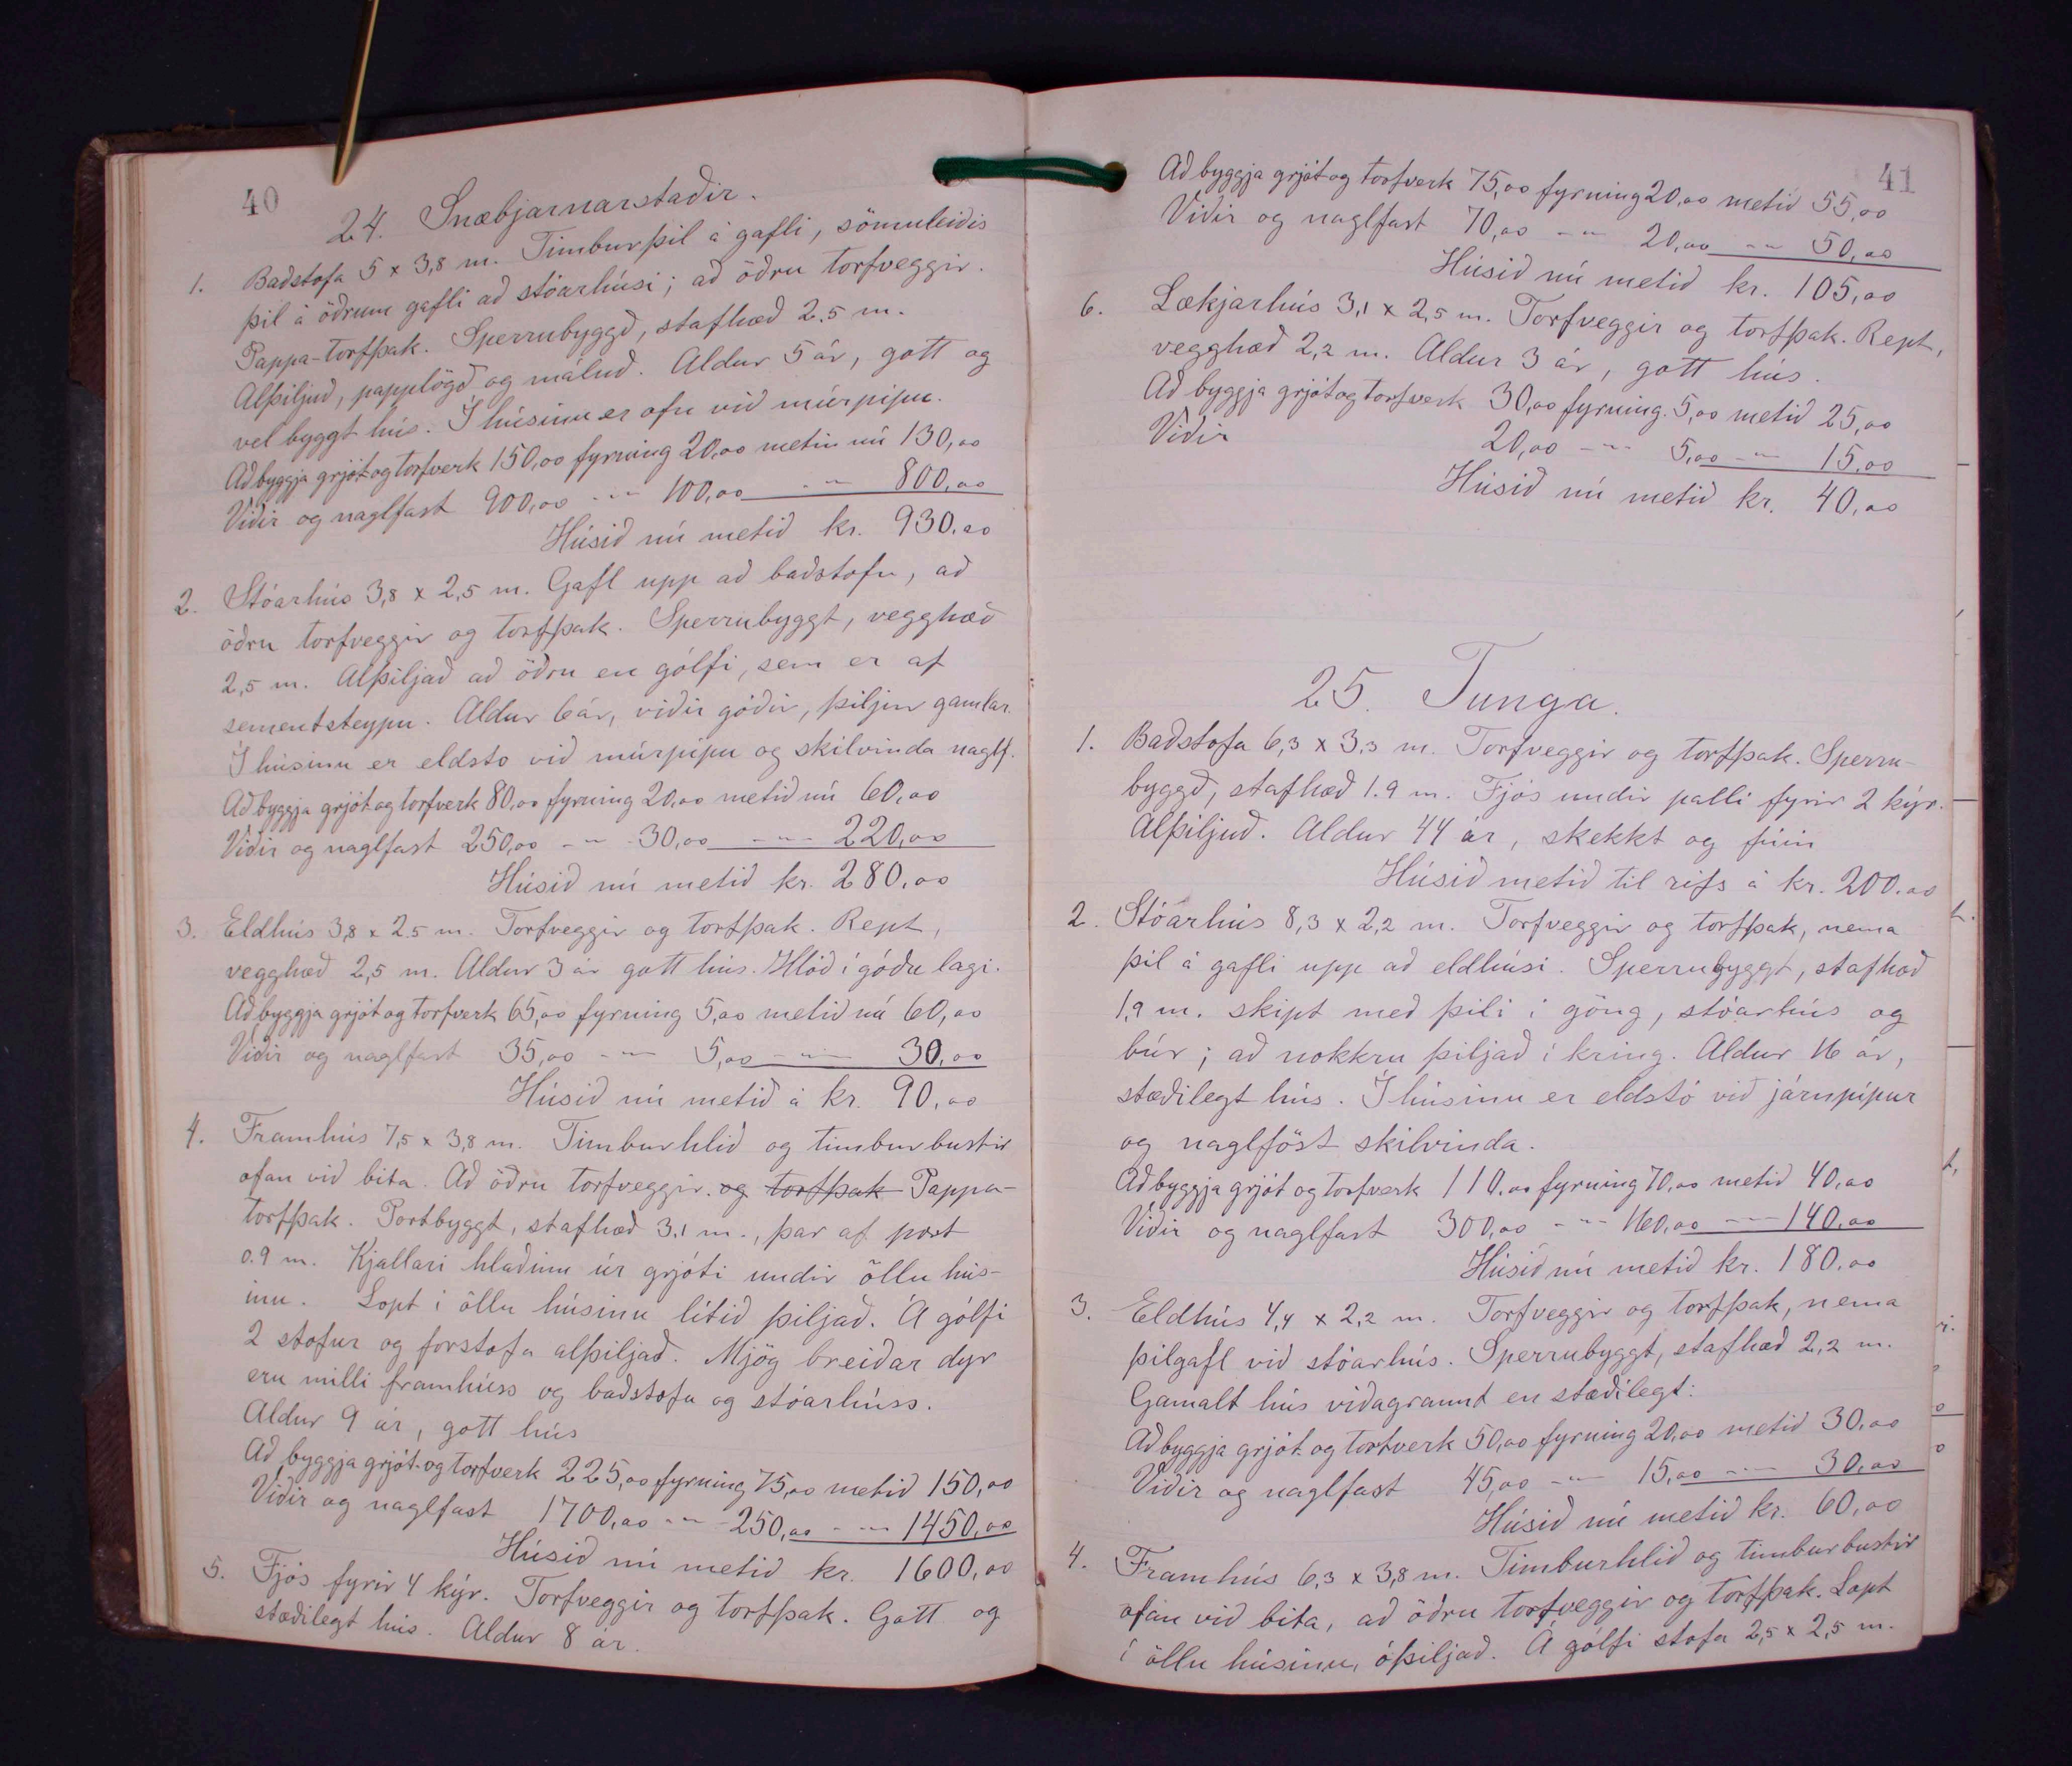 40
24. Snæbjarnarstaðir.
1. Baðstofa 5 x 3,8 m. Timburþil á gafli, sömuleiðis
þil á öðrum gafli að stóarhúsi; að öðru torfveggir.
Pappa-torfþak. Sperrubyggð, stafhæð 2.5 m.
Alþiljuð, papplögð og máluð. Aldur 5 ár, gott og
vel byggt hús. Í húsinu er ofn við múrpípu.
Að byggja grjót og torfverk 150,00 fyrning 20,00 metin nú 130,00
Viðir og naglfast 900,00 -"- 100,00 -"- 800,00
Húsið nú metið kr. 930.00
2. Stóarhús 3,8 x 2,5 m. Gafl upp að baðstofu, að
öðru torfveggir og torfþak. Sperrubyggt, vegghæð
2,5 m. Alþiljað að öðru en gólfi, sem er af
sementsteypu. Aldur 6 ár, viðir góðir, þiljur gamlar.
Í húsinu er eldsto við múrpípu og skilvinda naglf.
Að byggja grjót og torfverk 80,00 fyrning 20,00 metið nú 60,00
Viðir og naglfast 250,00 -"- 30,00 -"- 220,00
Húsið nú metið kr. 280,00
3. Eldhús 3,8 x 2.5 m. Torfveggir og torfþak. Rept,
vegghæð 2,5 m. Aldur 3 ár gott hús. Hlóð í góðu lagi.
Að byggja grjót og torfverk 65,00 fyrning 5,00 metið nú 60,00
Viðir og naglfast 35,00 -"- 5,00 -"- 30,00
Húsið nú metið á kr. 90,00
4. Framhús 7,5 x 3,8 m. Timburhlið og timburbustir
ofan við bita. Að öðru torfveggir. og torfþak Pappa-
torfþak. Portbyggt, stafhæð 3,1 m., þar af port
0.9 m. Kjallari hlaðinn úr grjóti undir öllu hús-
inu. Lopt í öllu húsinu lítið þiljað. Á gólfi
2 stofur og forstofa alþiljað. Mjög breiðar dyr
eru milli framhúss og baðstofu og stóarhúss.
Aldur 9 ár, gott hús
Að byggja grjót-og torfverk 225,00 fyrning 75,00 metið 150,00
Viðir og naglfast 1700,00 -"- 250,00 -"- 1450,00
Húsið nú metið kr. 1600,00
5. Fjós fyrir 4 kýr. Torfveggir og torfþak. Gott og
stæðilegt hús. Aldur 8 ár.
41
Að byggja grjót og torfverk 75,00 fyrning 20,00 metið 55,00
Viðir og naglfast 70,00 -"- 20,00 -"- 50,00
Húsið nú metið kr. 105,00
6. Lækjarhús 3,1 x 2,5 m. Torfveggir og torfþak. Rept,
vegghæð 2,2 m. Aldur 3 ár, gott hús.
Að byggja grjót og torfverk 30,00 fyrning. 5,00 metið 25,00
Viðir 20,00 -"- 5,00 -"- 15,00
Húsið nú metið kr. 40,00
25. Tunga.
1. Baðstofa 6,3 x 3,3 m. Torfveggir og torfþak. Sperru-
byggð, stafhæð 1.9 m. Fjós undir palli fyrir 2 kýr.
Alþiljuð. Aldur 44 ár, skekkt og fúin
Húsið metið til rifs á kr. 200.00
2. Stóarhús 8,3 x 2,2 m. Torfveggir og torfþak, nema
þil á gafli upp að eldhúsi. Sperrubyggt, stafhæð
1,9 m. skipt með þili í göng, stóarhús og
búr; að nokkru þiljað í kring. Aldur 16 ár,
stæðilegt hús. Í húsinu er eldstó við járnpípur
og naglföst skilvinda.
Að byggja grjót og torfverk 110.00 fyrning 70,00 metið 40,00
Viðir og naglfast 300,00 -"- 160,00 -"- 140,00
Húsið nú metið kr. 180.00
3. Eldhús 4,4 x 2,2 m. Torfveggir og torfþak, nema
þilgafl við stóarhús. Sperrubyggt, stafhæð 2,2 m.
Gamalt hús viðagrannt en stæðilegt:
Að byggja grjót og torfverk 50,00 fyrning 20,00 metið 30,00
Viðir og naglfast 45,00 -"- 15,00 -"- 30,00
Húsið nú metið kr. 60,00
4. Framhús 6,3 x 3,8 m. Timburhlið og timburbustir
ofan við bita, að öðru torfveggir og torfþak. Lopt
í öllu húsinu, óþiljað. Á gólfi stofa 2,5 x 2,5 m.